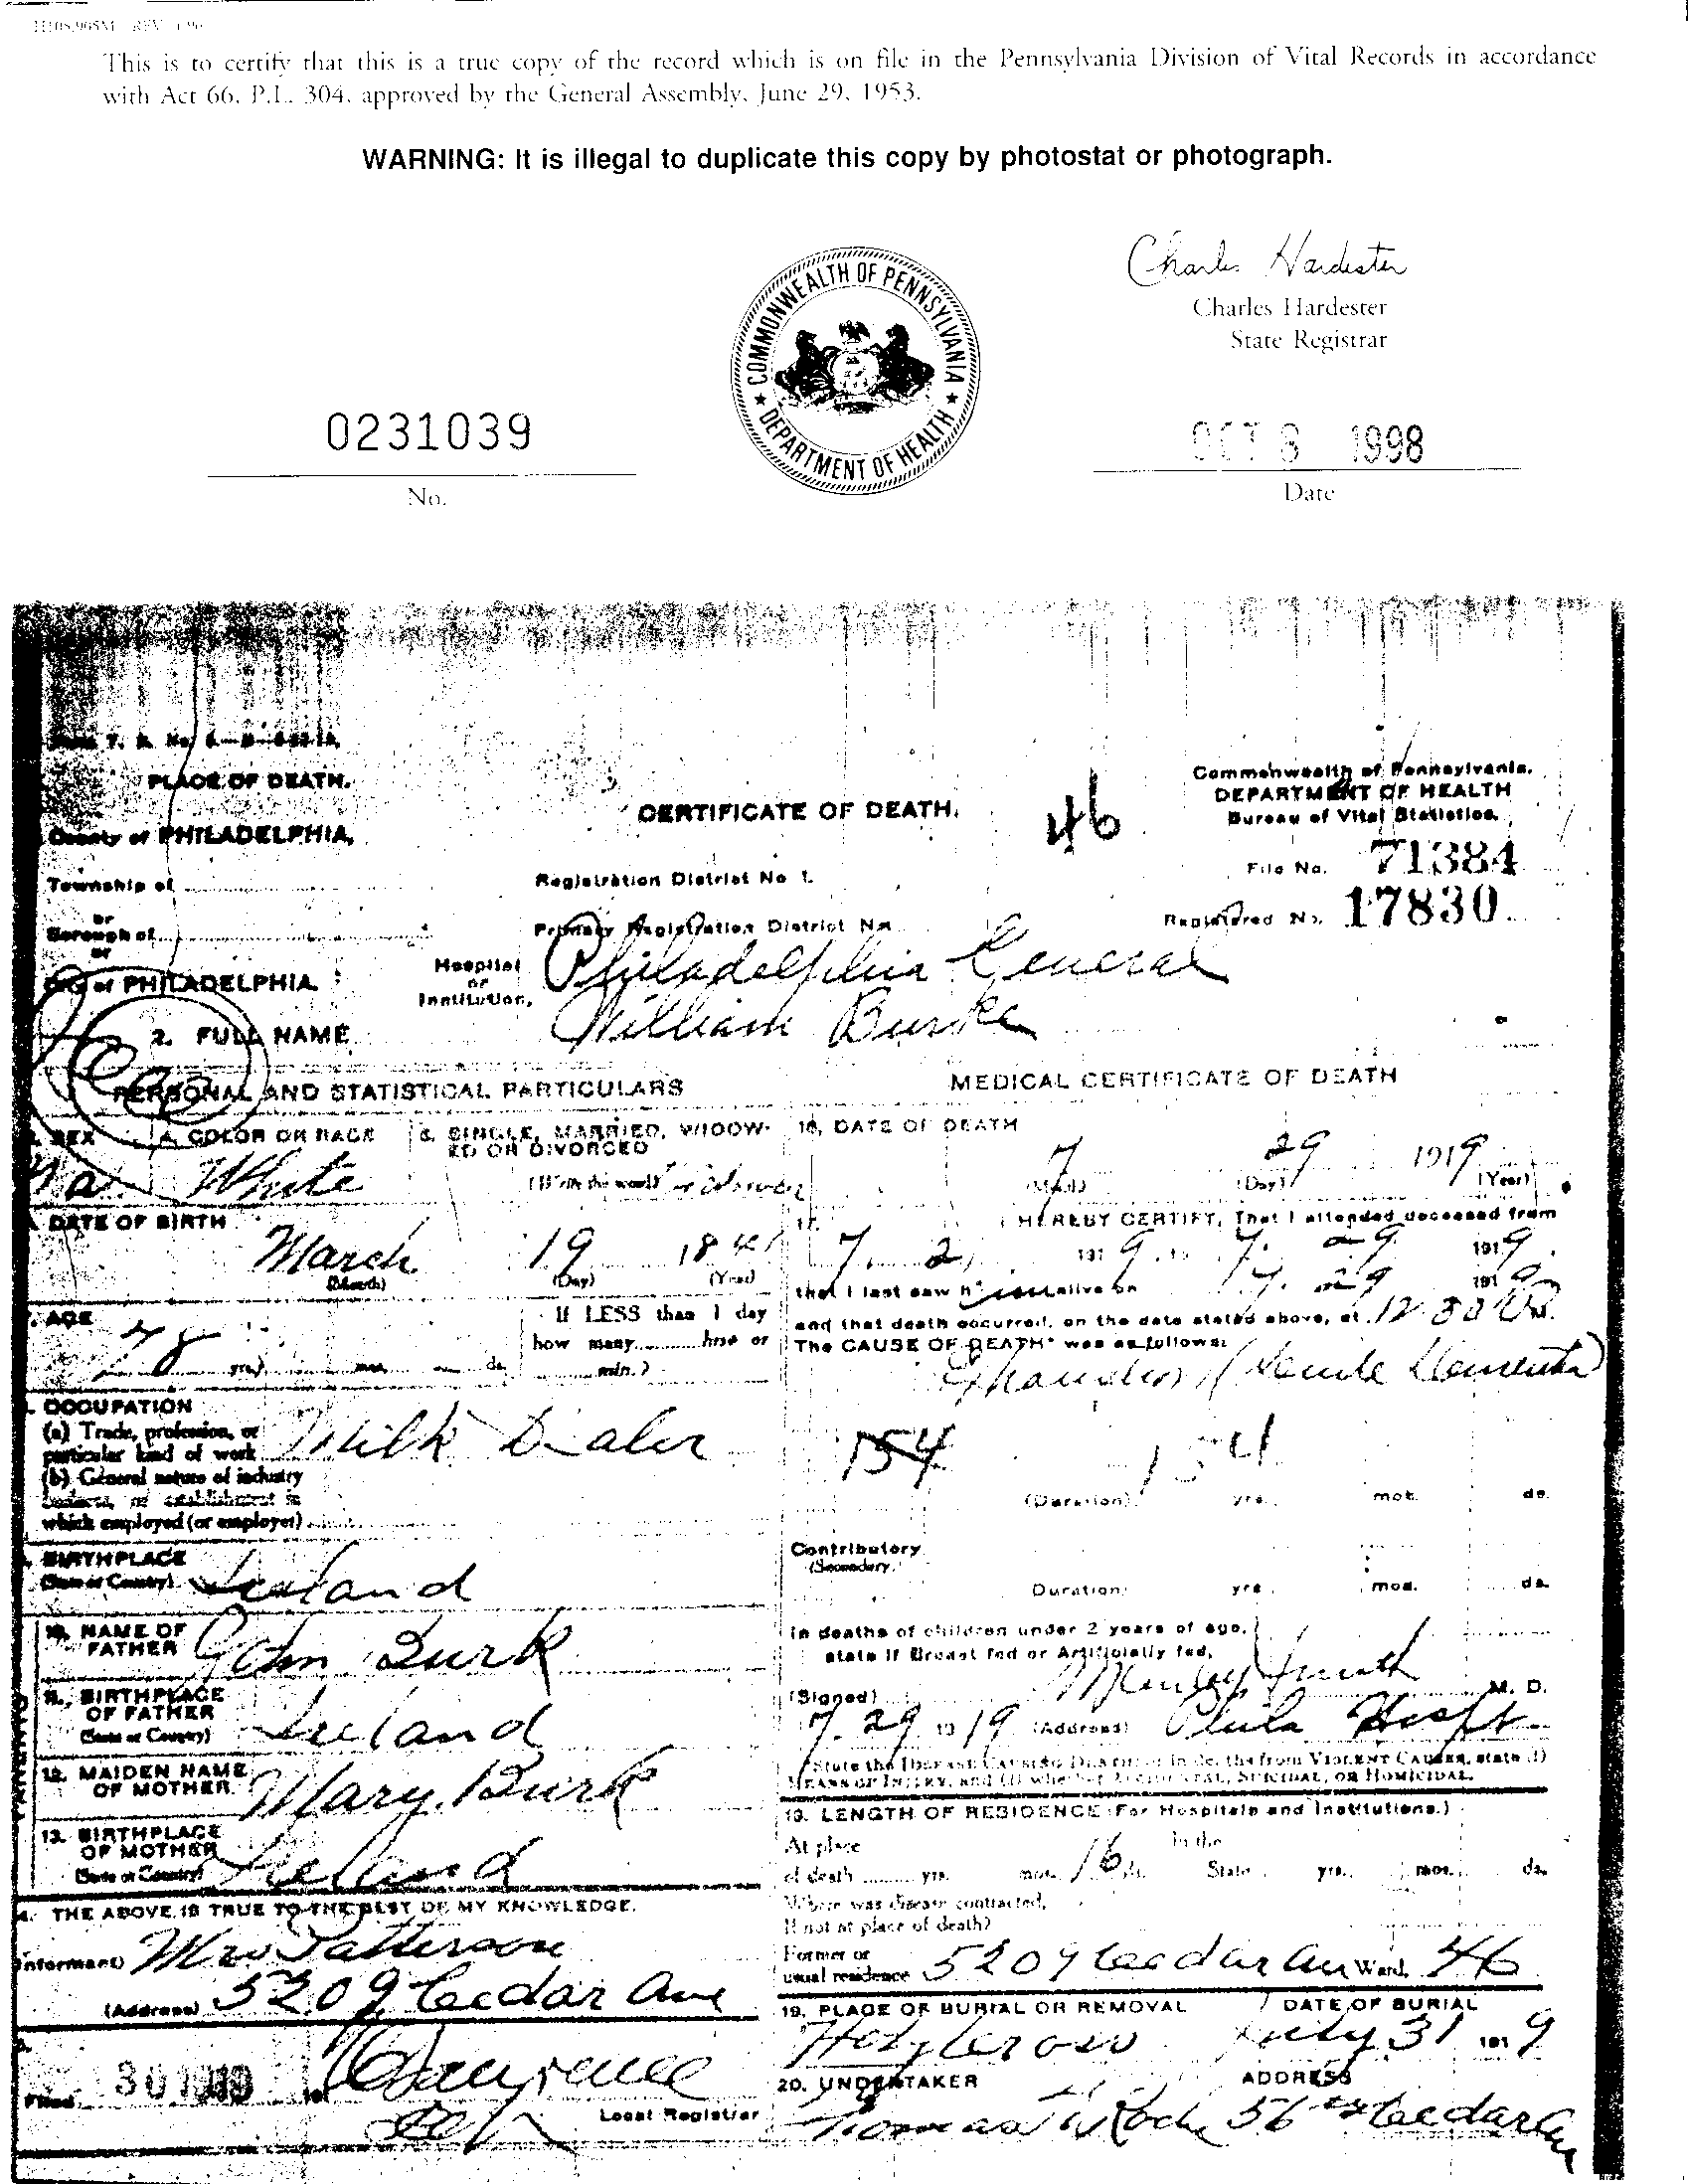 H105.965M REV
This is to certify that this is a true copy of the record which is on file in the Pennsylvania Division of Vital Records in accordance
with Act 66, P.L. 304, approved by the General Assembly, June 29, 1953.
WARNING: It is illegal to duplicate this copy by photostat or photograph.
Charles Hardester
Charles Hardester
State Registrar
COMMONWEALTH OF PENNSYLVANIA
DEPARTMENT OF HEALTH
0231039
No.
OCT 8 1998
Date
PLACE OF DEATH.
County of PHILADELPHIA,
Township of
or
Borough of
or
City of PHILADELPHIA
CERTIFICATE OF DEATH.
46
Commonwealth of Pennsylvania.
DEPARTMENT OF HEALTH
Bureau of Vital Statistics.
Registration District No 1.
File No. 71384
Primary Registration District No.
Registered No. 17830
Hospital or Institution, Philadelphia General
2. FULL NAME William Burke
PERSONAL AND STATISTICAL PARTICULARS
3. SEX
4. COLOR OR RACE White
5. SINGLE, MARRIED, WIDOW-
ED OR DIVORCED
(Write the word) Widower
6. DATE OF BIRTH
March 19 1841
(Month) (Day) (Year)
7. AGE
78 yrs. mos. ds.
If LESS than 1 day
how many hrs. or
min.?
8. OCCUPATION
(a) Trade, profession, or
particular kind of work Milk Dealer
(b) General nature of industry
business, or establishment in
which employed (or employer)
9. BIRTHPLACE
(State or Country) Ireland
10. NAME OF
FATHER John Burk
11. BIRTHPLACE
OF FATHER
(State or Country) Ireland
12. MAIDEN NAME
OF MOTHER. Mary Burk
13. BIRTHPLACE
OF MOTHER
(State or Country) Ireland
14. THE ABOVE IS TRUE TO THE BEST OF MY KNOWLEDGE.
(Informant) Mrs Patterson
(Address) 5209 Cedar Ave
Filed 30 1919
Local Registrar
MEDICAL CERTIFICATE OF DEATH
16. DATE OF DEATH
7 29 1919
(Month) (Day) (Year)
17. I HEREBY CERTIFY, That I attended deceased from
7 2 1919 to 7. 29 1919
that I last saw him alive on 7. 29 1919
and that death occurred, on the date stated above, at 12 30
The CAUSE OF DEATH* was as follows:
Exhaustion (Senile Dementia)
154
154
(Duration) yrs. mos. ds.
Contributory
(Secondary.)
Duration yrs. mos. ds.
In deaths of children under 2 years of age,
state if Breast fed or Artificially fed,
(Signed) M. D.
7. 29 1919 (Address) Phila Hosp
*State the DISEASE CAUSING DEATH; or in deaths from VIOLENT CAUSES, state (1)
MEANS OF INJURY, and (2) whether ACCIDENTAL, SUICIDAL, OR HOMICIDAL.
18. LENGTH OF RESIDENCE (For Hospitals and Institutions.)
At place
of death yrs. mos. 16 ds.
In the
State yrs. mos. ds.
Where was disease contracted,
If not at place of death?
Former or
usual residence 5209 Cedar Av Ward, 46
19. PLACE OF BURIAL OR REMOVAL
Holy Cross
DATE OF BURIAL
July 31 1919
20. UNDERTAKER
ADDRESS
Thomas W Roche 56th & Cedar Av